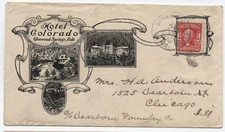 Hotel
Colorado
Glenwood Springs, Colo.
Mrs. H. d. Anderson
1525 Dearborn St
Chicago
Ill
c/o Dearborn Foundry Co